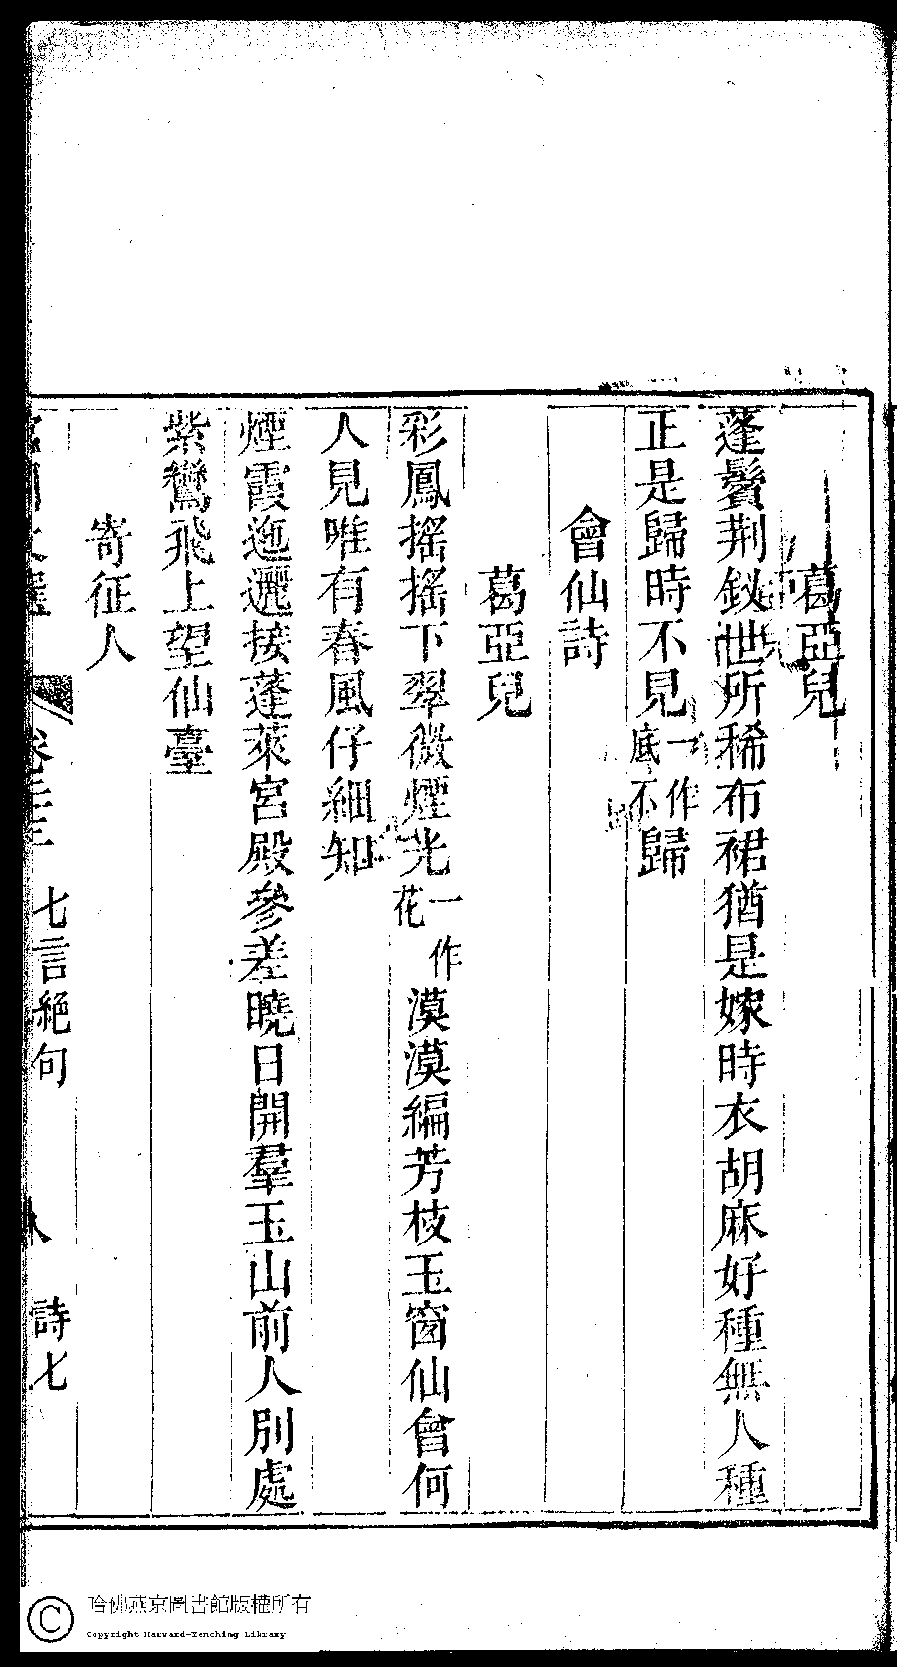 葛亞兒
蓬鬢荆釵世所稀布裙猶是嫁時衣胡麻好種無人種
正是歸時不見一作底不歸
會仙詩
葛亞兒
彩鳳搖搖下翠微煙光一作花漠漠編芳枝玉窗仙會何
人見唯有春風仔細知
煙霞迤邐接蓬萊宮殿參差曉日開羣玉山前人別處
紫鸞飛上望仙臺
寄征人
七言絕句 詩七
哈佛燕京圖書館版權所有
Copyright Harvard-Yenching Library